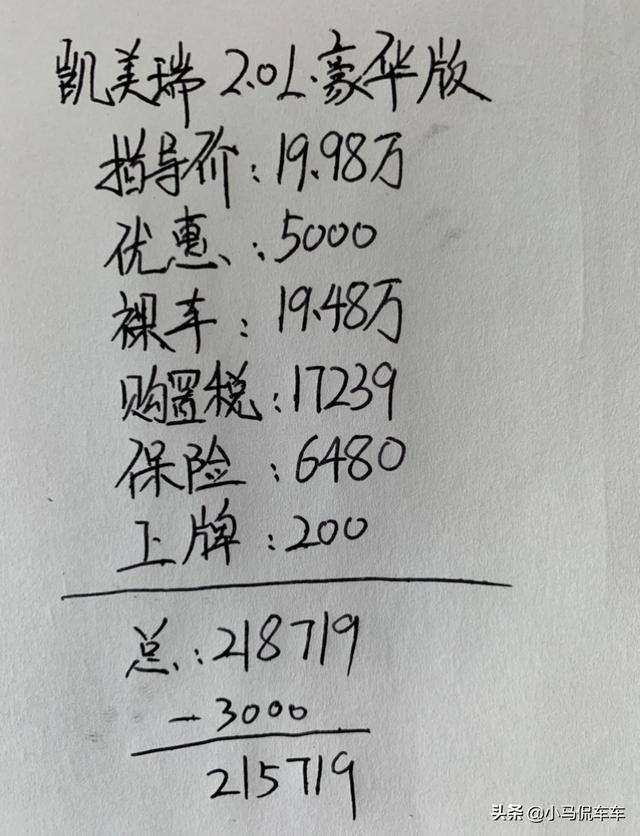 凯美瑞 2.0L.豪华版
指导价：19.98万
优惠：5000
裸车：19.48万
购置税：17239
保险：6480
上牌：200
总：218719
-3000
215719
头条 @小马侃车车